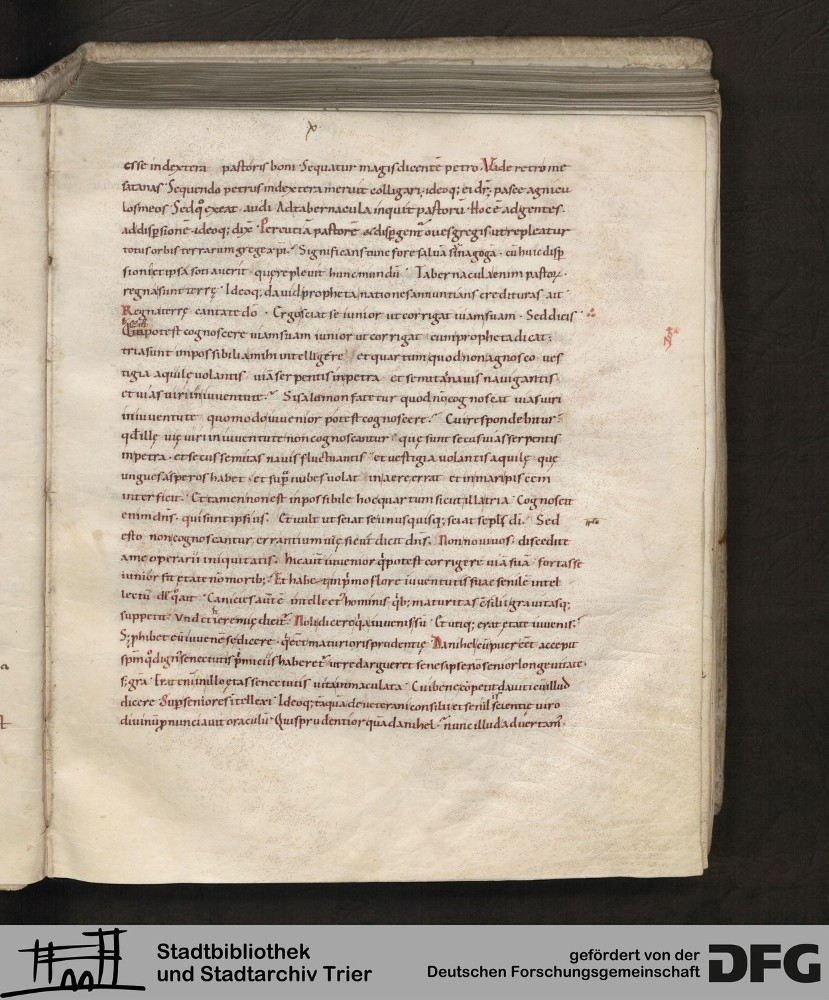 x
esse indextera pastoris boni Sequatur magis dicentē petro. Vade retro me
satanas Sequendo petrus indextera meruit colligari. ideoq; ei dr̄; pasce agnicu
los meos Sed qͦ exeat. audi Ad tabernacula inquit pastorū Hoc ē ad gentes.
ad disp̄sionē. ideoq; dix̄ Percutiā pastorē & disp̄gent᷑ oues gregis ut repleatur
totus orbis terrarum grege xp̄i. Significans tunc fore saluā sinagogā. cū huic disp̄
sioni et ipsa se auerit. quę repleuit hunc mundū Tabernacula enim pastoꝝ.
regna sunt terrę Ideoq; dauid propheta nationes annuntians credituras ait
Regna terrę cantate dō. Ergo sciat se iunior ut corrigat uiam suam. Sed dicis
Qui potest cognoscere uiam suam iunior ut corrigat cum propheta dicat;
tria sunt impossibilia mihi intelligere et quartum quod non agnosco ues
tigia aquile uolantis uiā serpentis in petra et semitā nauis nauigantis
et uias uiri in iuuentute. Si salomon fatetur quod nō cognoscat uias uiri
in iuuentute quomodo iuuenior potest cognoscere. Cui respondebitur
qd̄ illę uię uiri in iuuentute non cognoscantur quę sunt secus uias serpentis
in petra. et secus semitas nauis fluctuantis et uestigia uolantis aquilę quę
ungues asperos habet et sup̄ nubes uolat in aere errat et in mari piscem
interficit. Et tamen non est inpossibile hoc quartum sicut illa tria Cognoscit
enim dn̄s. qui sunt ipsius. Et uult ut sciat se unusquisq; sciat se pl̄s dī. Sed
esto non cognoscantur errantium uię sicut dicit dn̄s. Non noui uos. discedite
a me operarii iniquitatis. hic aut̄ iuuenior q̄ potest corrigere uiā suā fortasse
iunior sit ętate nō morib; Et habet in p̄mo flore iuuentutis suae senile intel
lectū de qͦ ait Canicies aut̄ ē intellect᷒ hominis qͥb; maturitas cōsilii grauitasq;
suppetit Vnde et ieremię dicit᷑. Noli dicere qͥa iuuenis sū Et utiq; erat ętate iuuenis.
S; phibet eū iuuenē se dicere. qͥ eēt maturioris prudentię Danihel cū puer eēt accepit
sp̄m qͦ dign᷒ senectutis p̄uiciis haberet᷑ ut redargueret senes ipse nō senior longeuitate
s; gra Erat enī in illo ętas senectutis uita inmaculata Cui bene cōpetit dauiticū illud
dicere Sup̄ seniores ītellexi Ideoq; tāquā de ueterani consilii et senil scientię uiro
diuinū pnunciauit oraculū Quis prudentior quā danihel. nunc illud aduertam᷒.
Stadtbibliothek
und Stadtarchiv Trier
gefördert von der
Deutschen Forschungsgemeinschaft
DFG